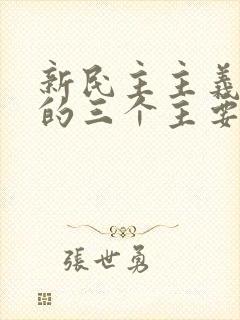 新民主主義
的三个主要
張世勇